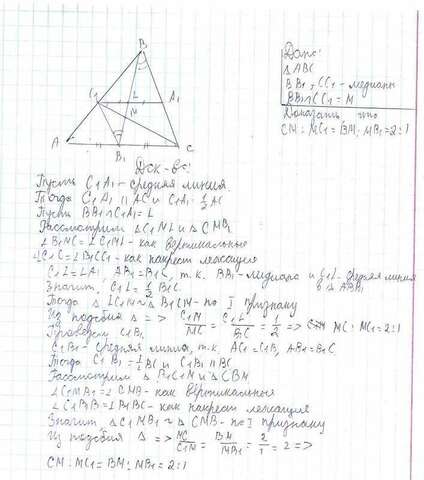 B
C₁
L
A₁
M
A
B₁
C
Дано:
Δ ABC
BB₁, CC₁ - медианы
BB₁∩CC₁ = M
Доказать, что
CM:MC₁=BM:MB₁=2:1
Док-во:
Пусть C₁A₁ - средняя линия.
Тогда C₁A₁ || AC и C₁A₁ = 1/2 AC
Пусть BB₁∩C₁A₁ = L
Рассмотрим Δ C₁ML и Δ CMB₁
как вертикальные
как накрест лежащие
C₁L = LA₁, AB₁=B₁C, т.к. BB₁ - медиана и C₁L - средняя линия
в Δ ABB₁
Значит, C₁L = 1/2 B₁C
Тогда Δ LC₁M ~ Δ B₁CM - по I признаку
Из подобия Δ => C₁M/MC = C₁L/B₁C = 1/2 => MC:MC₁=2:1
Проведем C₁B₁
C₁B₁ - средняя линия, т.к. AC₁=C₁B, AB₁=B₁C
Тогда C₁B₁ = 1/2 BC и C₁B₁ || BC
Рассмотрим Δ B₁C₁M и Δ CBM
∠C₁MB₁ = ∠CMB - как вертикальные
как накрест лежащие
Значит Δ C₁MB₁ ~ Δ CMB - по I признаку
Из подобия Δ => MC/C₁M = BM/MB₁ = 2/1 = 2 =>
CM:MC₁=BM:MB₁=2:1